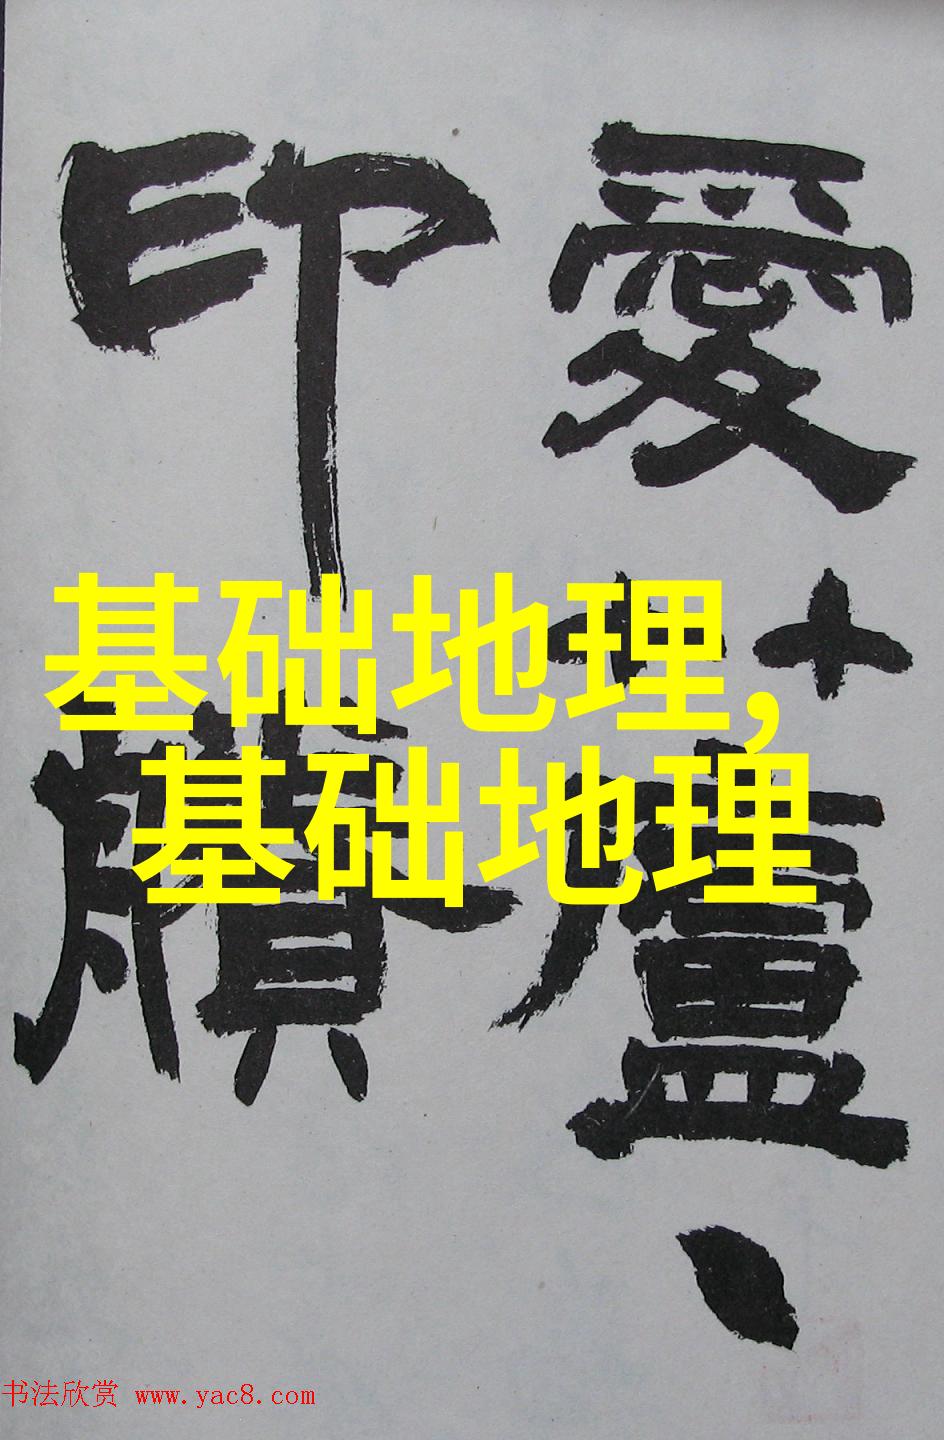 愛蘆、
印牘
基础地理,
基础地理
书法欣赏 www.yac8.com